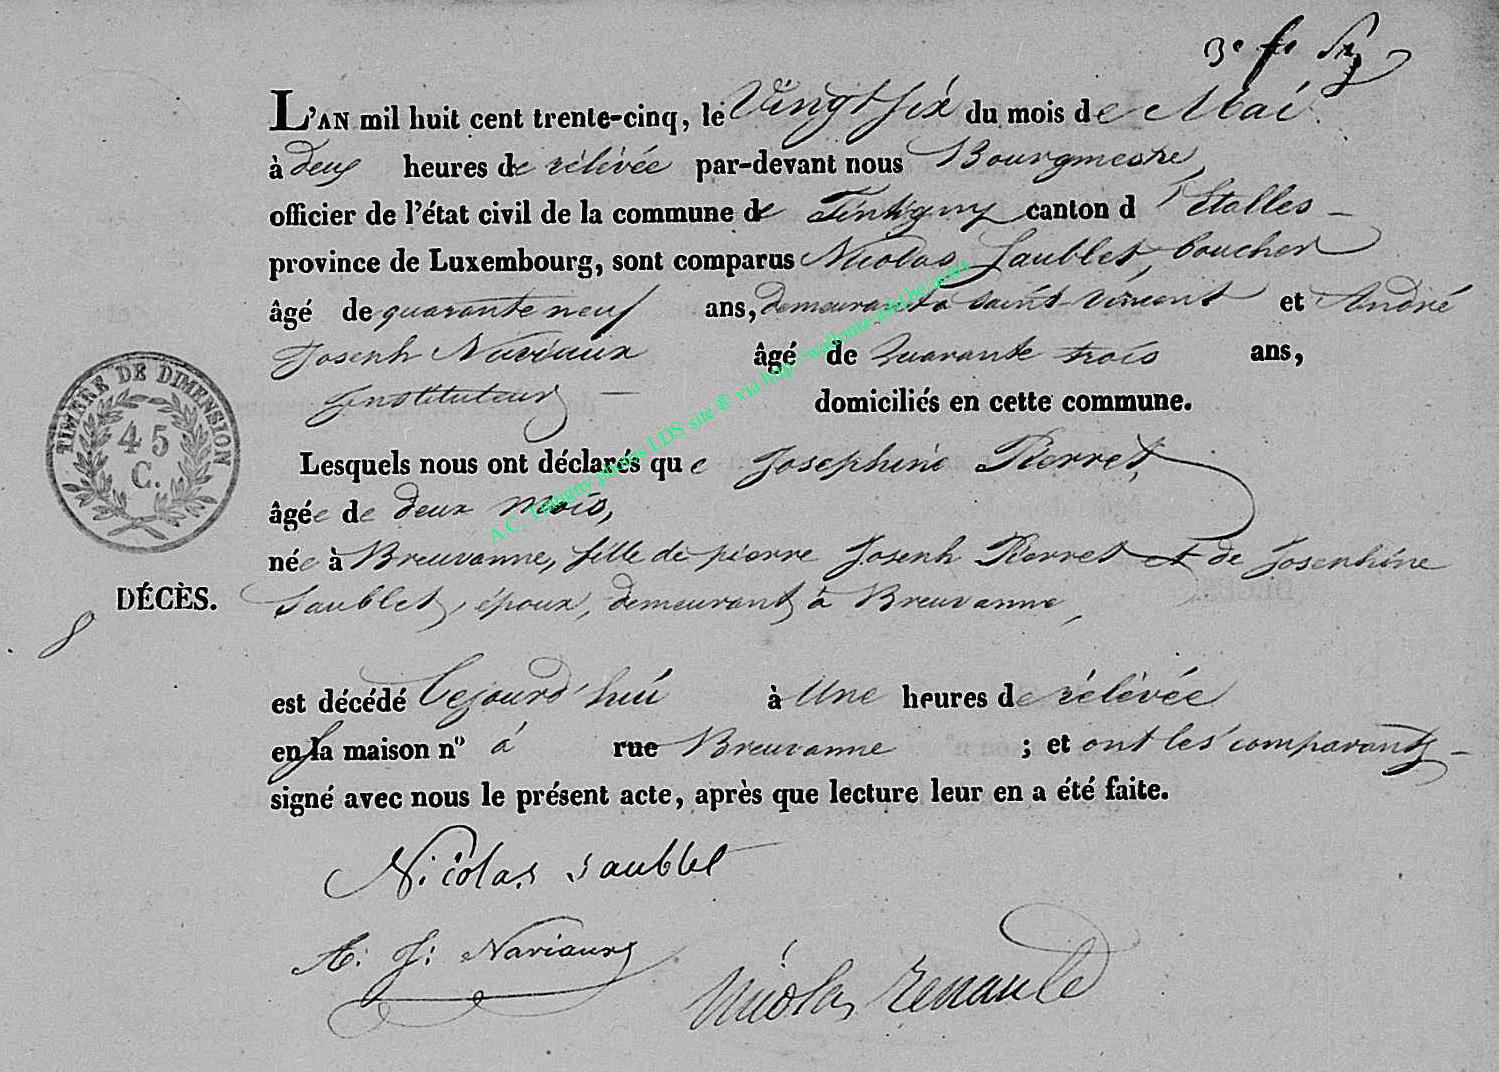 L'AN mil huit cent trente-cinq, le Vingt six du mois de Mai
à deux heures de rélévée par-devant nous Bourgmestre,
officier de l'état civil de la commune de Tintigny canton d'Etalles
province de Luxembourg, sont comparus Nicolas Saublet, boucher
âgé de quarante neuf ans, demeurant à saint-vincent et André
Joseph Naviaux âgé de Quarante trois ans,
Instituteur domiciliés en cette commune.
Lesquels nous ont déclarés que Josephine Pierret,
âgée de deux mois,
née à Breuvanne, fille de pierre Joseph Pierret et de Josephine
Saublet, époux, demeurant à Breuvanne,
TIMBRE DE DIMENSION
45
C.
DÉCÈS.
est décédé Cejourd'hui à Une heures de rélévée
en sa maison n° à rue Breuvanne ; et ont les comparants
signé avec nous le présent acte, après que lecture leur en a été faite.
Nicolas Saublet
A: J: Naviaux
Nicolas Renauld
A.C. Tintigny photos LDS site ® via http://wallonia-asbl.be/actes